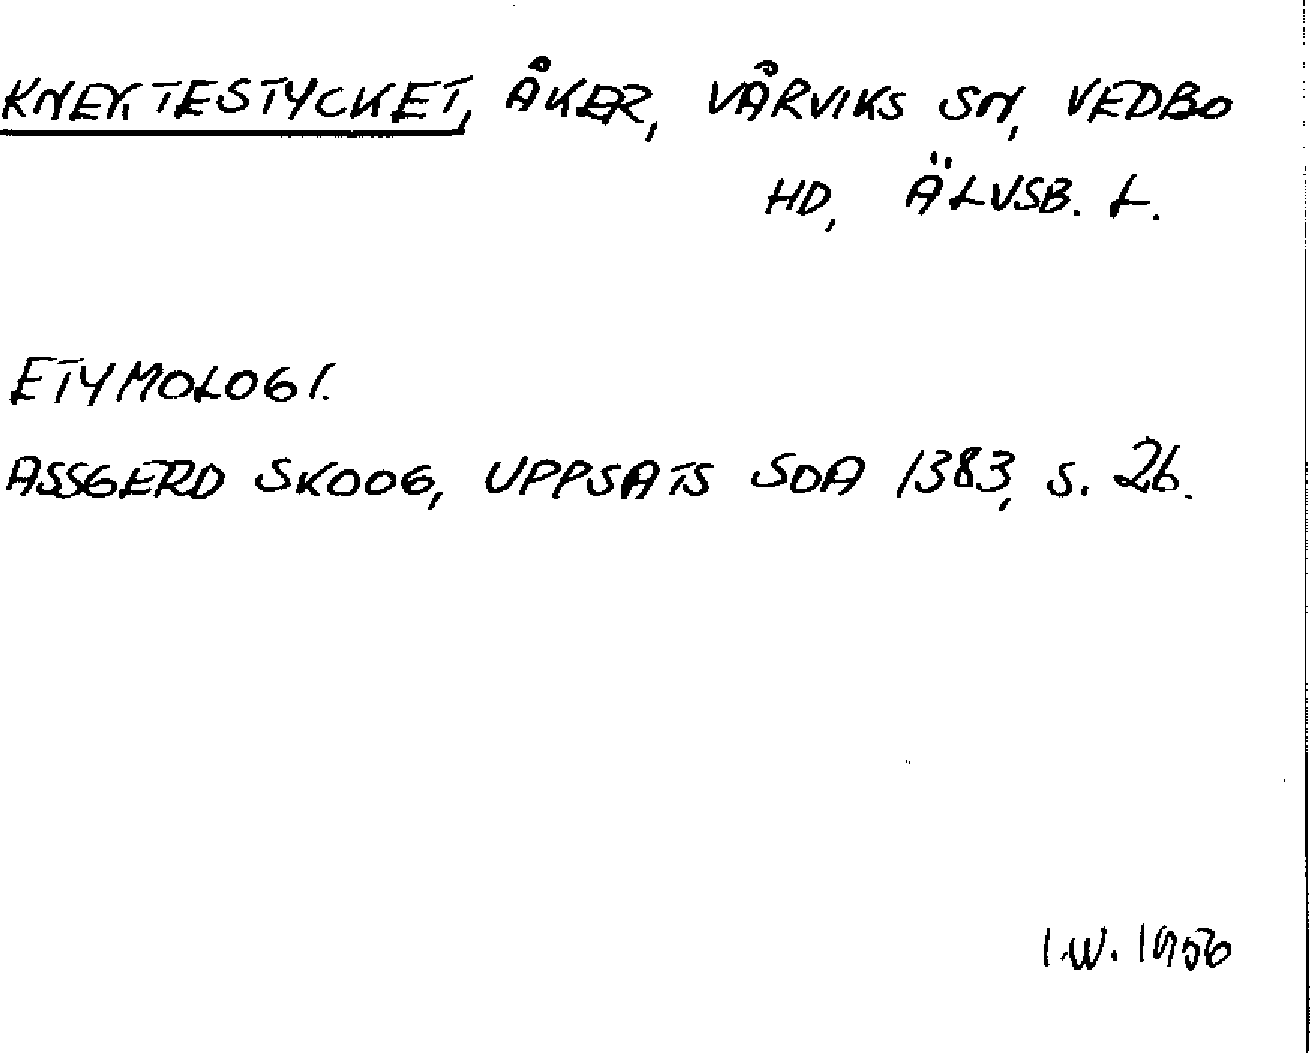 KNEKTESTYCKET, ÅKER, VÅRVIKS SN, VEDBO
HD, ÄLVSB. L.
ETYMOLOGI.
ASSGERD SKOOG, UPPSATS SOA 1383, S. 26.
I.W. 1956